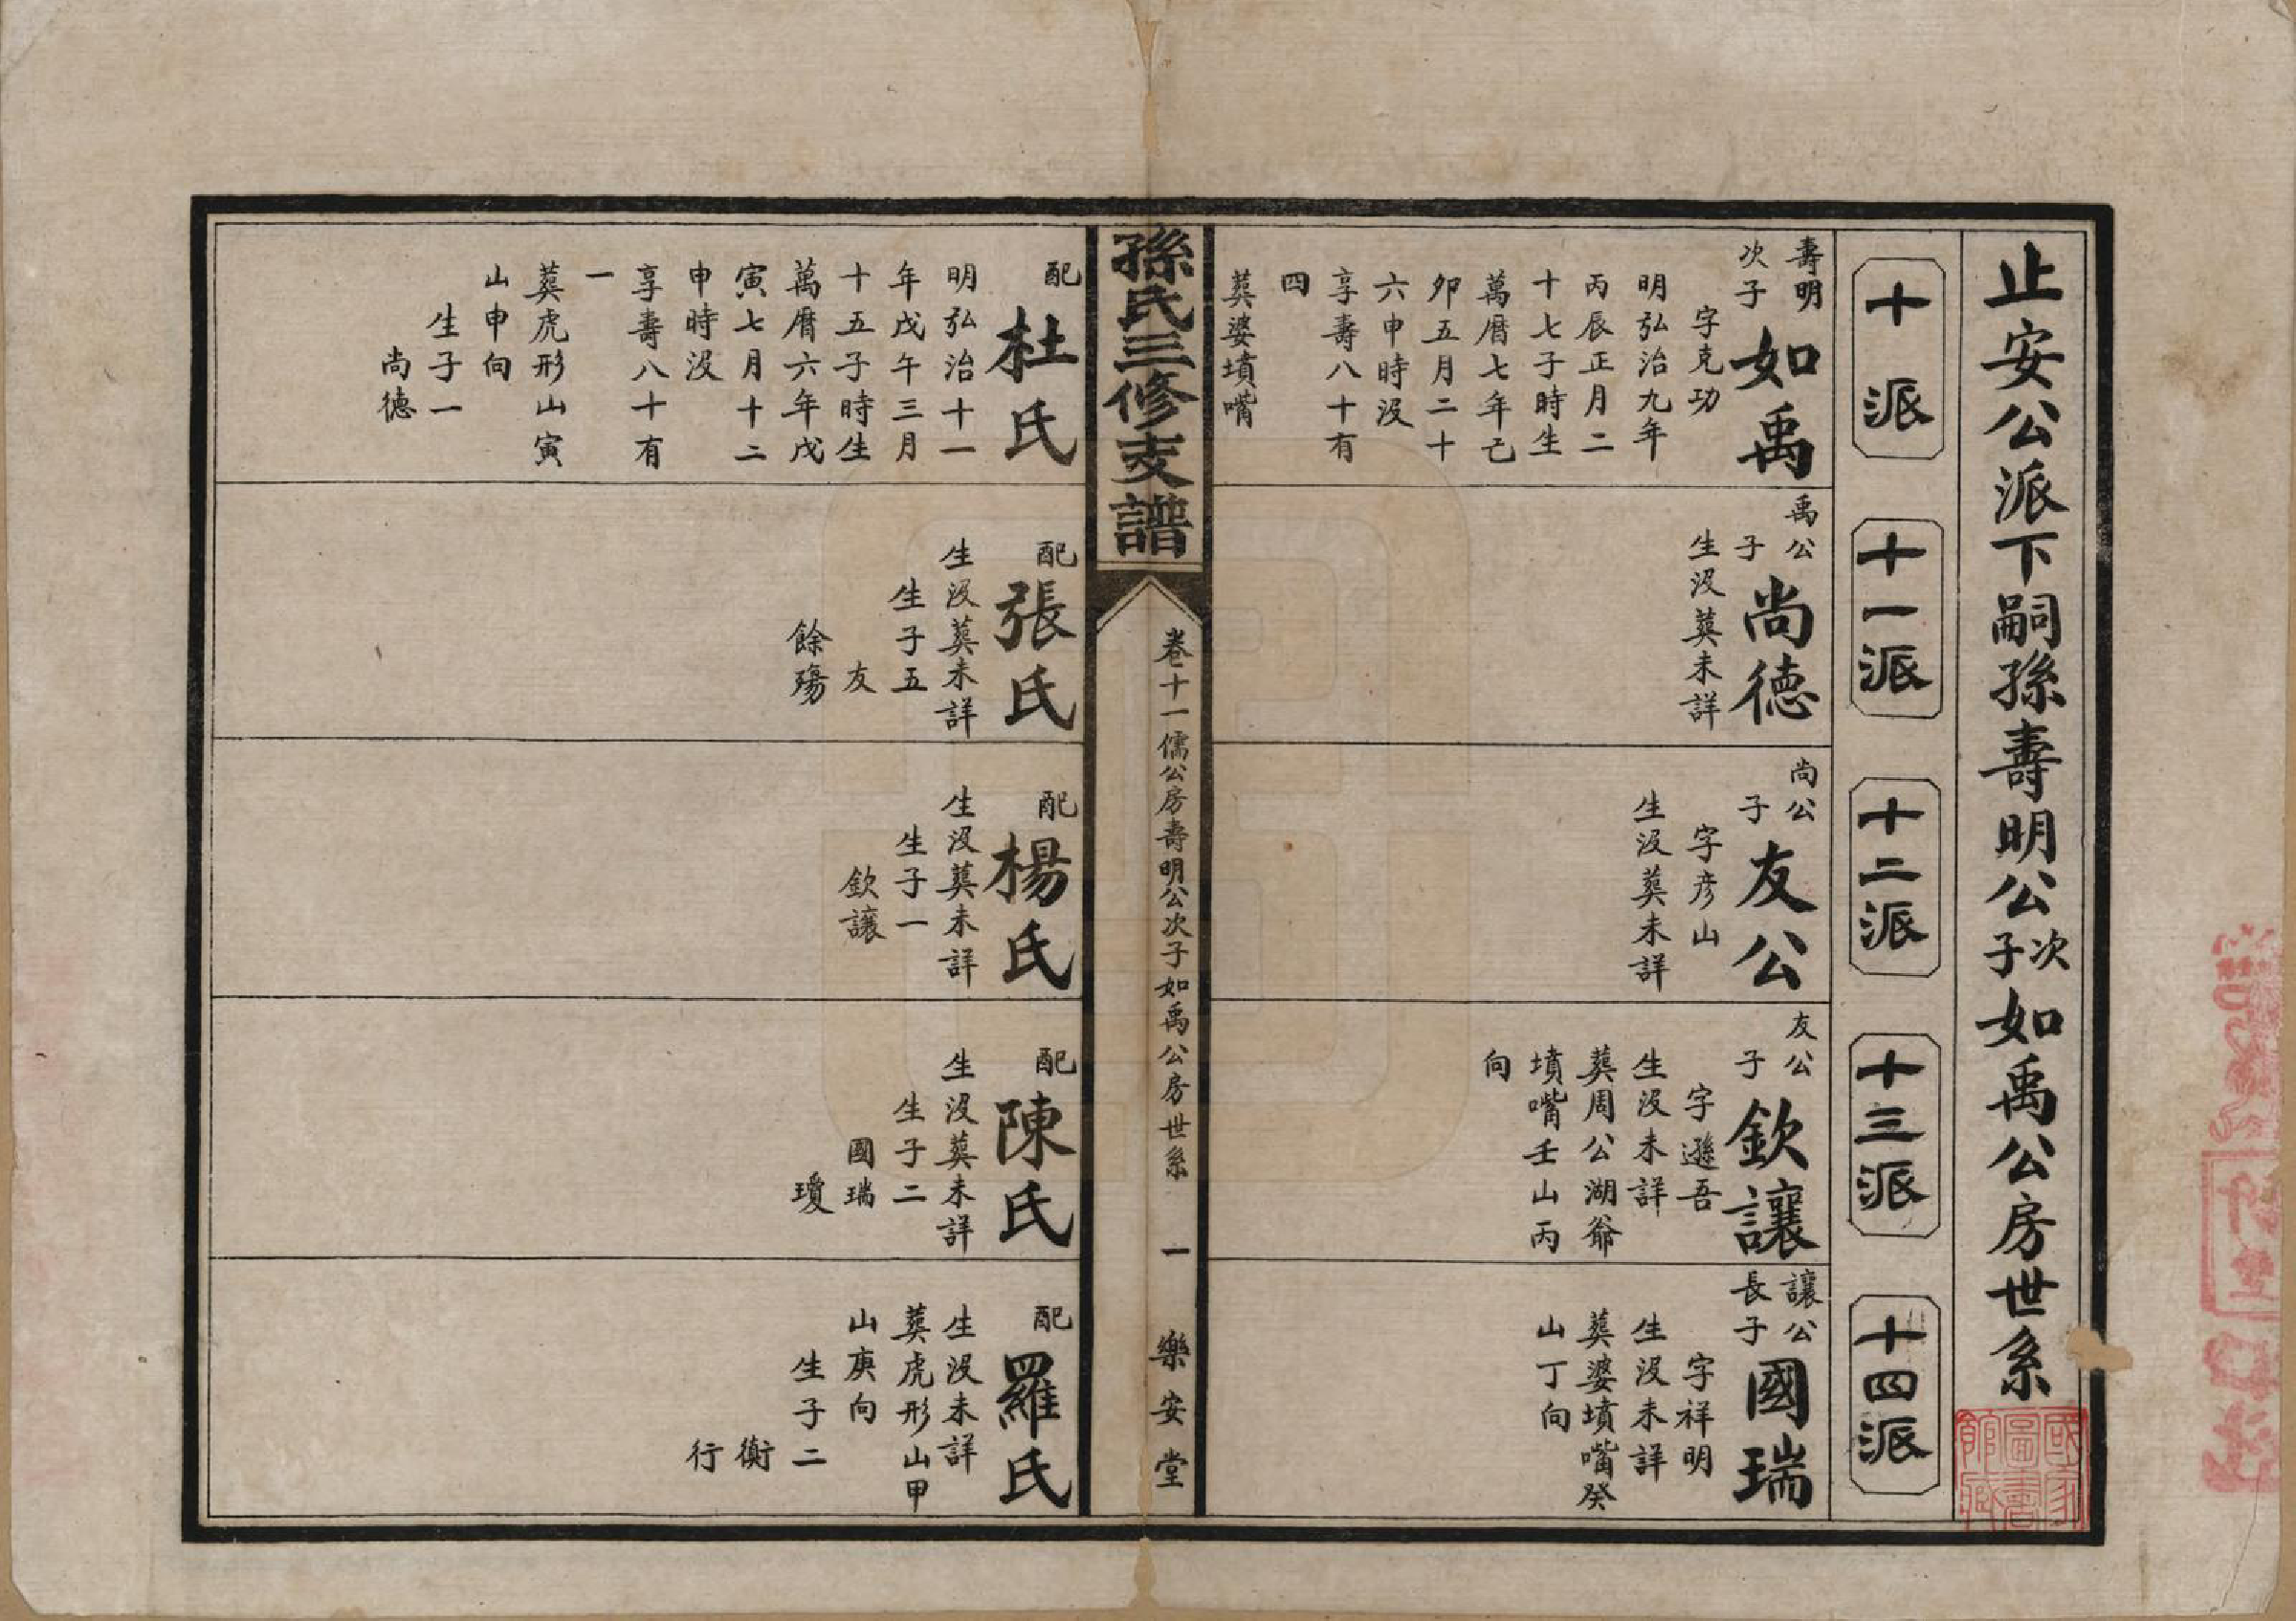 止安公派下嗣孫壽明公次子如禹公房世系
十派
十一派
十二派
十三派
十四派
壽明
次子
如禹
字克功
明弘治九年
丙辰正月二
十七子時生
萬曆七年己
卯五月二十
六申時没
享壽八十有
四
葬婆墳嘴
禹公
子
尚德
生没葬未詳
尚公
子
友公
字彦山
生没葬未詳
友公
子
欽讓
字遜吾
生没未詳
葬周公湖爺
墳嘴壬山丙
向
讓公
長子
國瑞
字祥明
生没未詳
葬婆墳嘴癸
山丁向
孫氏三修支譜
卷十一儒公房壽明公次子如禹公房世系
一
樂安堂
配
杜氏
明弘治十一
年戊午三月
十五子時生
萬曆六年戊
寅七月十二
申時没
享壽八十有
一
葬虎形山寅
山申向
生子一
尚德
配
張氏
生没葬未詳
生子五
友
餘殤
配
楊氏
生没葬未詳
生子一
欽讓
配
陳氏
生没葬未詳
生子二
國瑞
瓊
配
羅氏
生没未詳
葬虎形山甲
山庚向
生子二
衡
行
國家圖書館藏